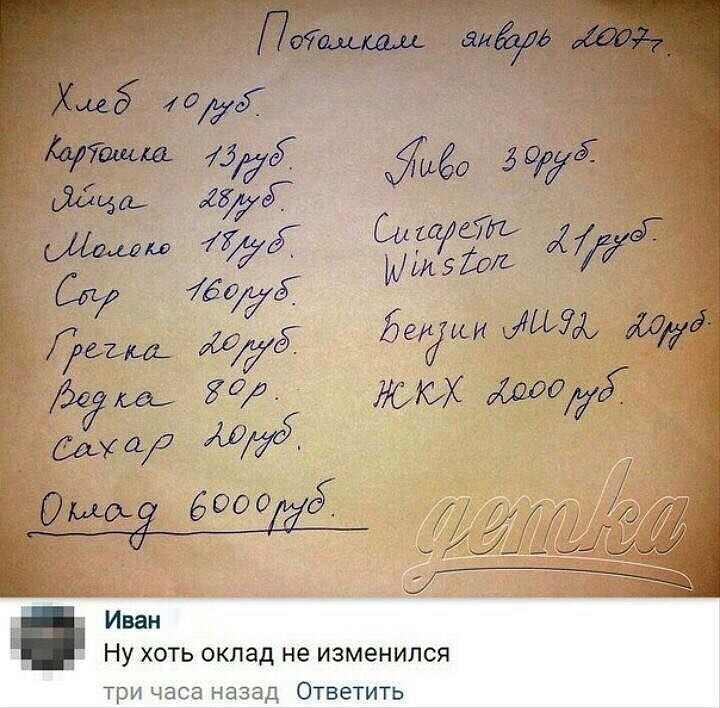 Потомкам январь 2007г.
Хлеб 10 руб.
Картошка 13руб.
Яйца 28руб.
Молоко 18руб.
Сыр 160руб.
Гречка 20руб.
Водка 80р.
Сахар 20руб.
Оклад 6000руб.
Пиво 30руб.
Сигареты
Winston 21руб.
Бензин АИ92 20руб.
ЖКХ 2000руб.
gemka
Иван
Ну хоть оклад не изменился
три часа назад Ответить